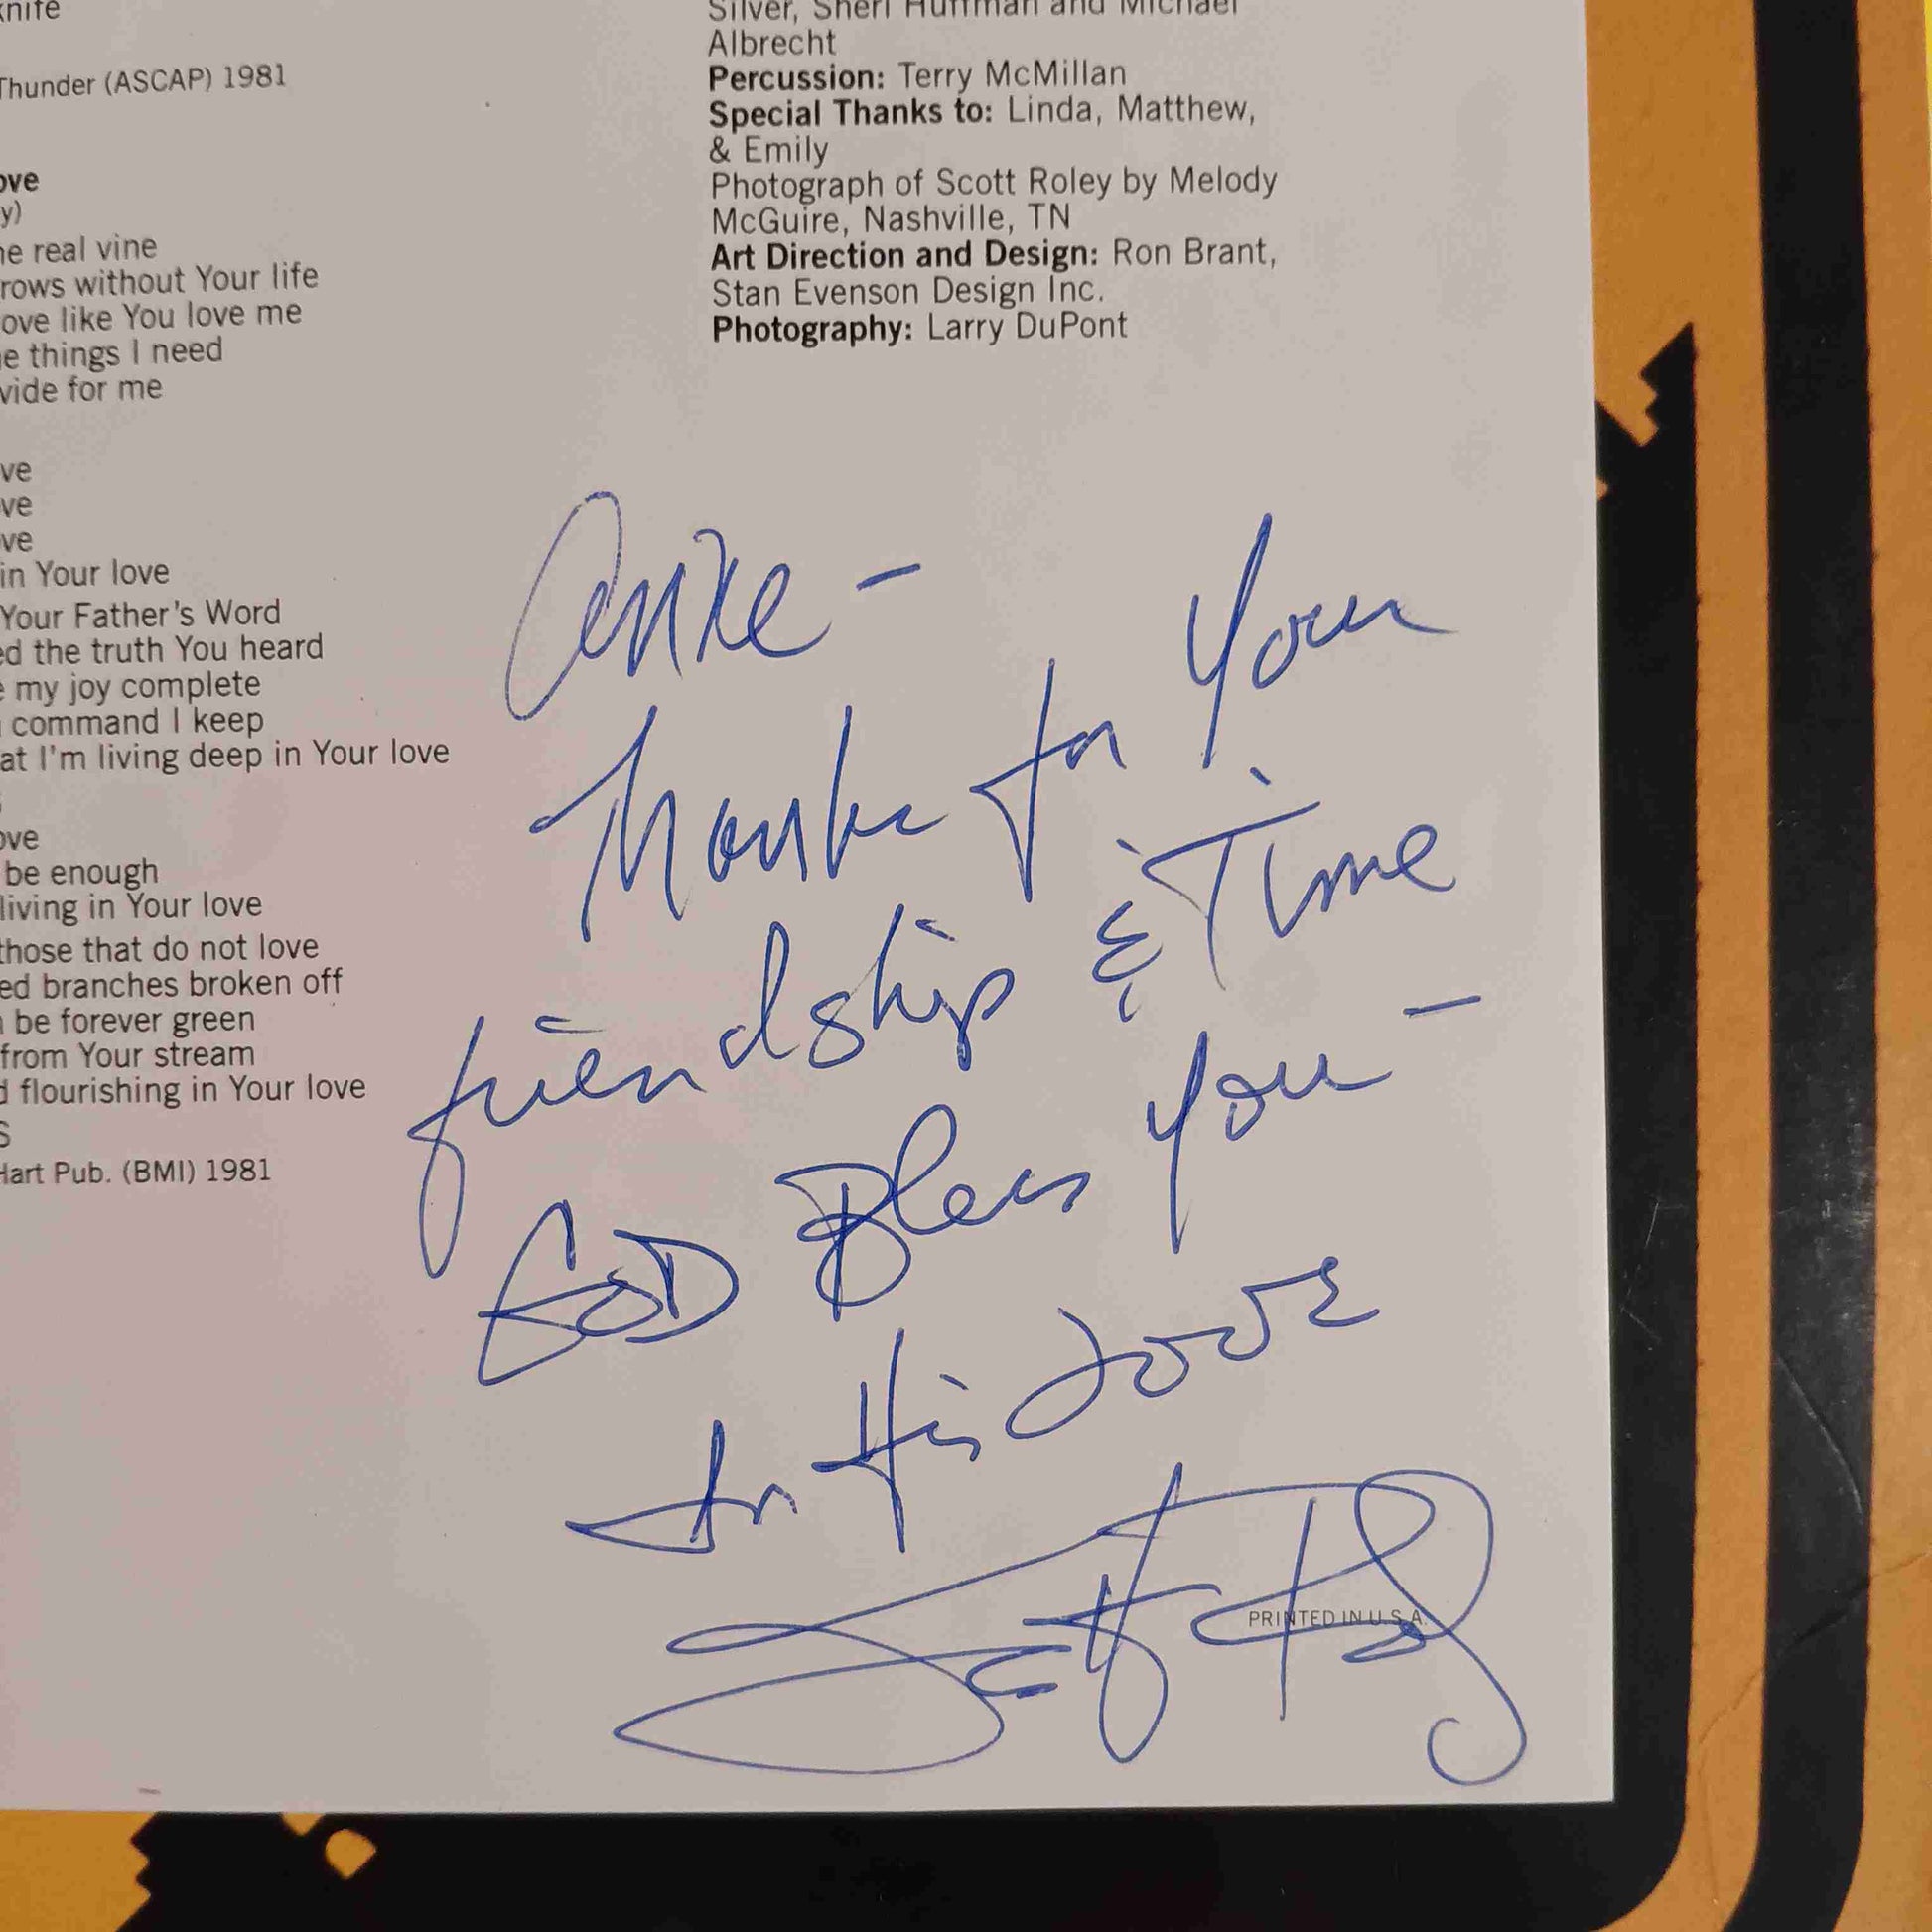 knife
Thunder (ASCAP) 1981
ove
y)
he real vine
rows without Your life
ove like You love me
e things I need
vide for me
ve
ve
ve
in Your love
Your Father's Word
ed the truth You heard
e my joy complete
command I keep
at I'm living deep in Your love
ove
be enough
living in Your love
those that do not love
ed branches broken off
be forever green
from Your stream
d flourishing in Your love
S
Hart Pub. (BMI) 1981
Silver, Sheri Huffman and Michael
Albrecht
Percussion: Terry McMillan
Special Thanks to: Linda, Matthew,
& Emily
Photograph of Scott Roley by Melody
McGuire, Nashville, TN
Art Direction and Design: Ron Brant,
Stan Evenson Design Inc.
Photography: Larry DuPont
Anke -
Thanks for Your
friendship & Time
GOD Bless You -
In His Love
Scott Roley
PRINTED IN U.S.A.